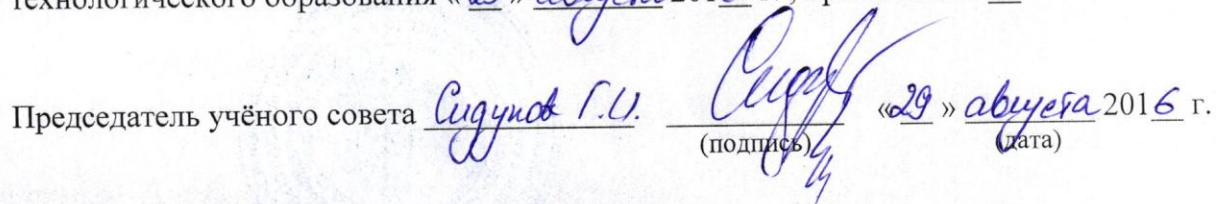 технологического образования «29» августа 201
Председатель учёного совета Сидунов Г.И. «29» августа 2016 г.
(подпись) (дата)